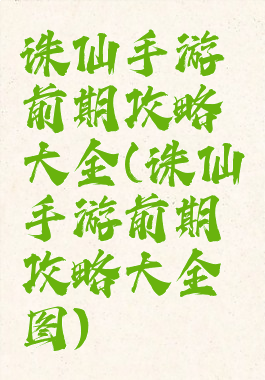 诛仙手游
前期攻略
大全(诛仙
手游前期
攻略大全
图)